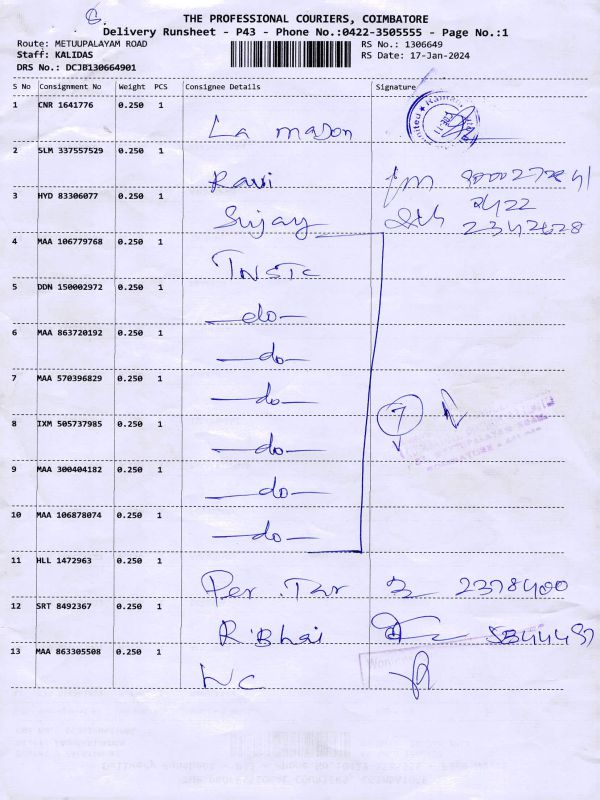 THE PROFESSIONAL COURIERS, COIMBATORE
Delivery Runsheet - P43 - Phone No.:0422-3505555 - Page No.:1
Route: METUUPALAYAM ROAD
RS No.: 1306649
Staff: KALIDAS
RS Date: 17-Jan-2024
DRS No.: DCJB130664901
S No Consignment No Weight PCS Consignee Details Signature
1 CNR 1641776 0.250 1
La mason
2 SLM 337557529 0.250 1
Ravi
3 HYD 83306077 0.250 1
2422
Sujay 2342628
4 MAA 106779768 0.250 1
TNSTC
5 DDN 150002972 0.250 1
—do—
6 MAA 863720192 0.250 1
—do—
7 MAA 570396829 0.250 1
—do—
7
8 IXM 505737985 0.250 1
—do—
9 MAA 300404182 0.250 1
—do—
10 MAA 106878074 0.250 1
—do—
11 HLL 1472963 0.250 1
Per. 2378400
12 SRT 8492367 0.250 1
R.Bhai
13 MAA 863305508 0.250 1